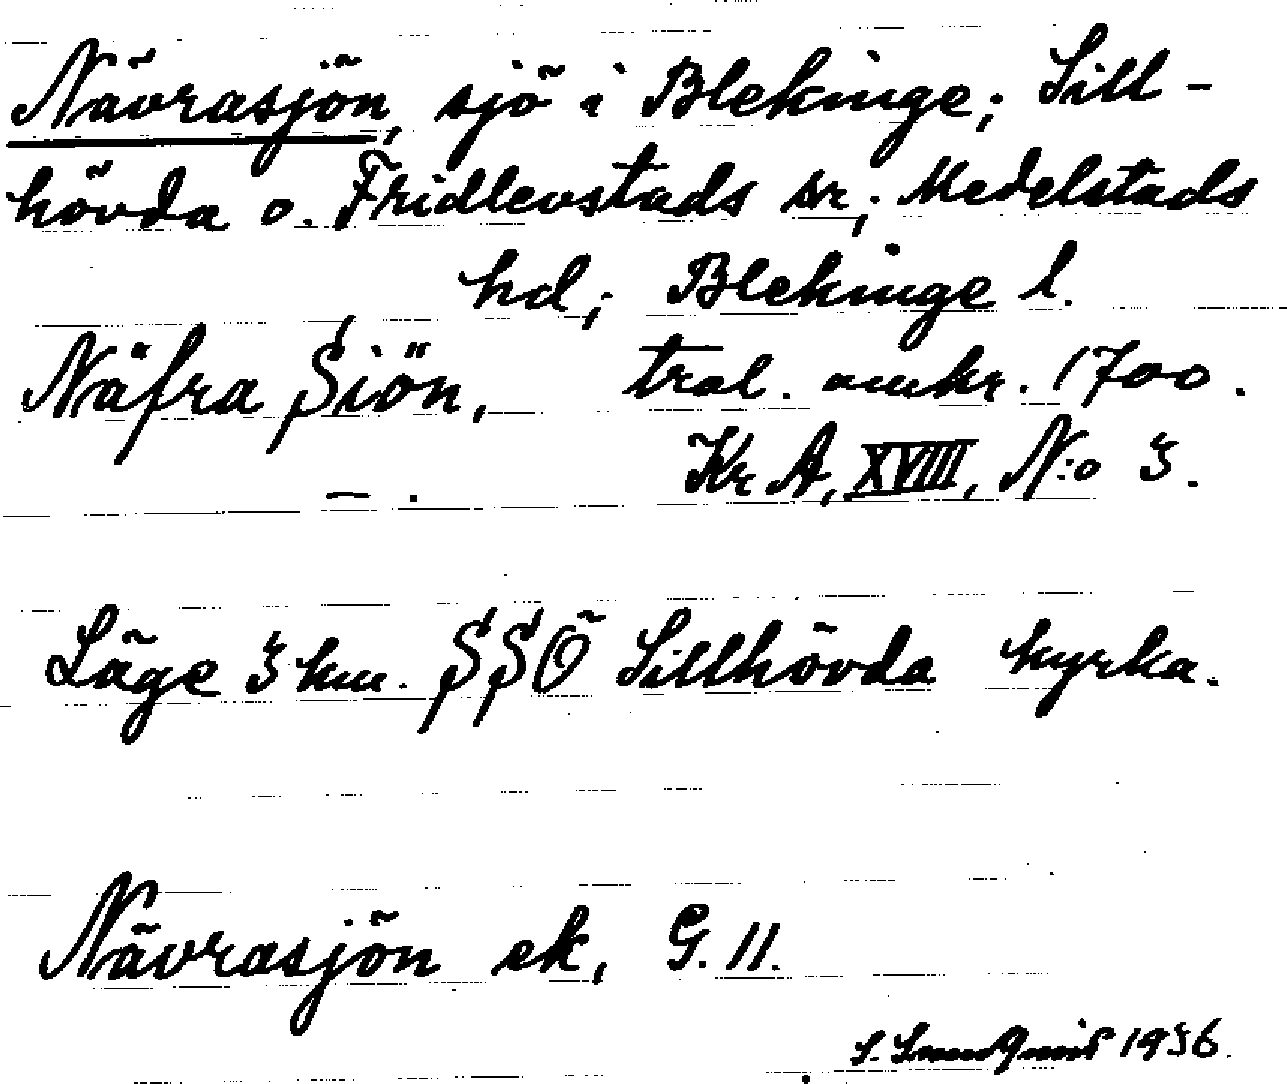 Nävrasjön, sjö i Blekinge; Sill-
hövda o. Fridlevstads sr; Medelstads
hd; Blekinge l.
Näfra Siön, tral. omkr. 1700.
— . Kr A, XVIII, N:o 3.
Läge 3 km. SSÖ Sillhövda kyrka.
Nävrasjön ek, G. 11.
S. 1936.